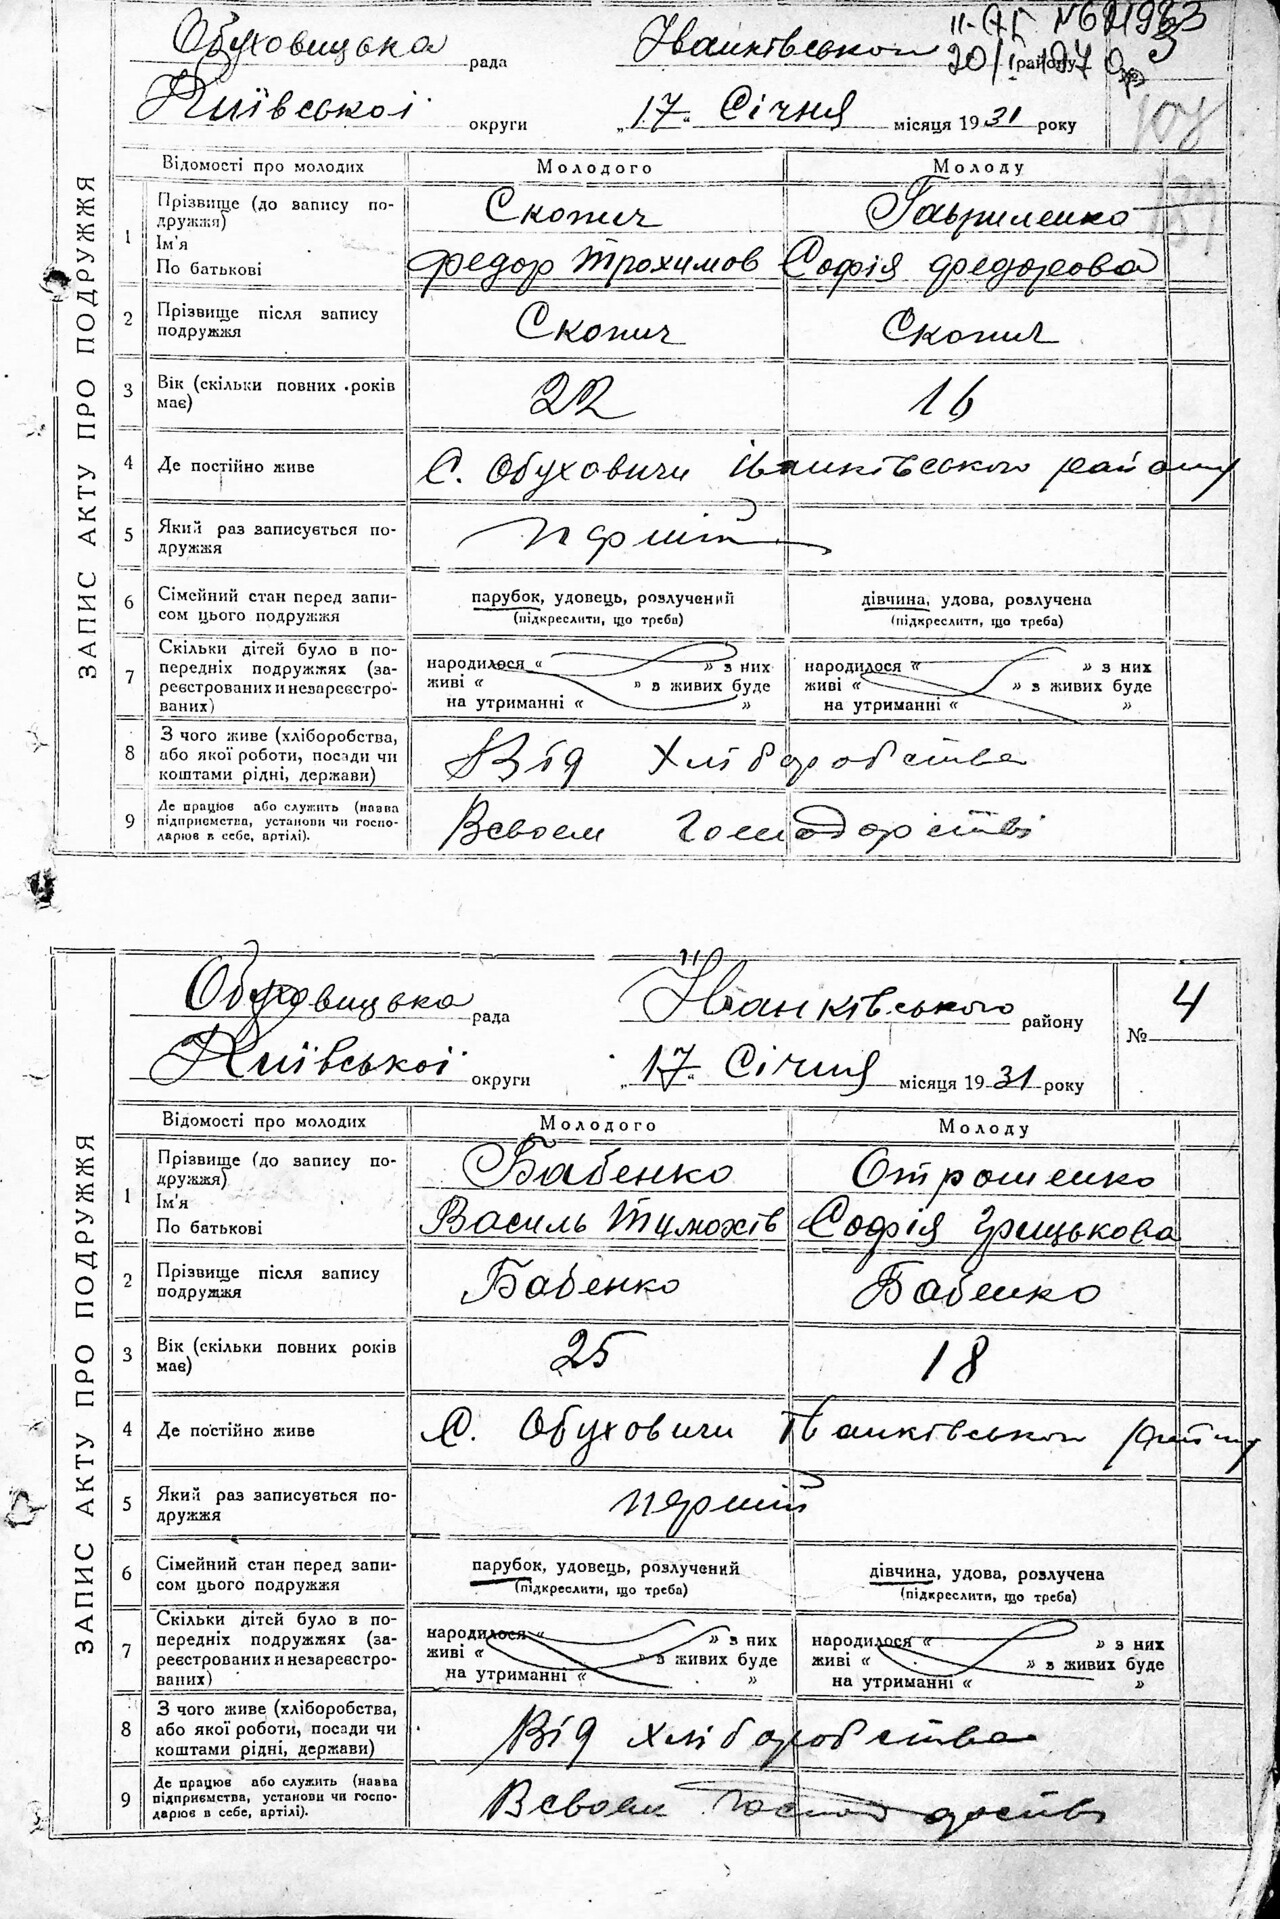 Обуховицька рада Іванківського району 3
20/I 1970
Київської округи „17“ Січня місяця 1931 року
107
ЗАПИС АКТУ ПРО ПОДРУЖЖЯ
Відомості про молодих Молодого Молоду
1 Прізвище (до запису по-
дружжя) Скопич Гавриленко
Ім'я
По батькові Федор Трохимов Софія Федорова
2 Прізвище після запису
подружжя Скопич Скопич
3 Вік (скільки повних років
має) 22 16
4 Де постійно живе С. Обуховичи Іванківського району
5 Який раз записується по-
дружжя перший
6 Сімейний стан перед запи-
сом цього подружжя парубок, удовець, розлучений дівчина, удова, розлучена
(підкреслити, що треба) (підкреслити, що треба)
7 Скільки дітей було в по-
передніх подружжях (за-
реєстрованих и незареєстро-
ваних) народилося “ ” з них народилося “ ” з них
живі “ ” в живих буде живі “ ” в живих буде
на утриманні “ ” на утриманні “ ”
8 З чого живе (хліборобства,
або якої роботи, посади чи
коштами рідні, держави) Від хліборобства
9 Де працює або служить (назва
підприємства, установи чи госпо-
дарює в себе, артілі). Всвоем господарстві
Обуховицька рада Іванківського району № 4
Київської округи „17“ Січня місяця 1931 року
ЗАПИС АКТУ ПРО ПОДРУЖЖЯ
Відомості про молодих Молодого Молоду
1 Прізвище (до запису по-
дружжя) Бабенко Отрошенко
Ім'я
По батькові Василь Тимохів Софія Грицькова
2 Прізвище після запису
подружжя Бабенко Бабенко
3 Вік (скільки повних років
має) 25 18
4 Де постійно живе С. Обуховичи Іванківського району
5 Який раз записується по-
дружжя перший
6 Сімейний стан перед запи-
сом цього подружжя парубок, удовець, розлучений дівчина, удова, розлучена
(підкреслити, що треба) (підкреслити, що треба)
7 Скільки дітей було в по-
передніх подружжях (за-
реєстрованих и незареєстро-
ваних) народилося “ ” з них народилося “ ” з них
живі “ ” в живих буде живі “ ” в живих буде
на утриманні “ ” на утриманні “ ”
8 З чого живе (хліборобства,
або якої роботи, посади чи
коштами рідні, держави) Від хліборобства
9 Де працює або служить (назва
підприємства, установи чи госпо-
дарює в себе, артілі). Всвоем господарстві